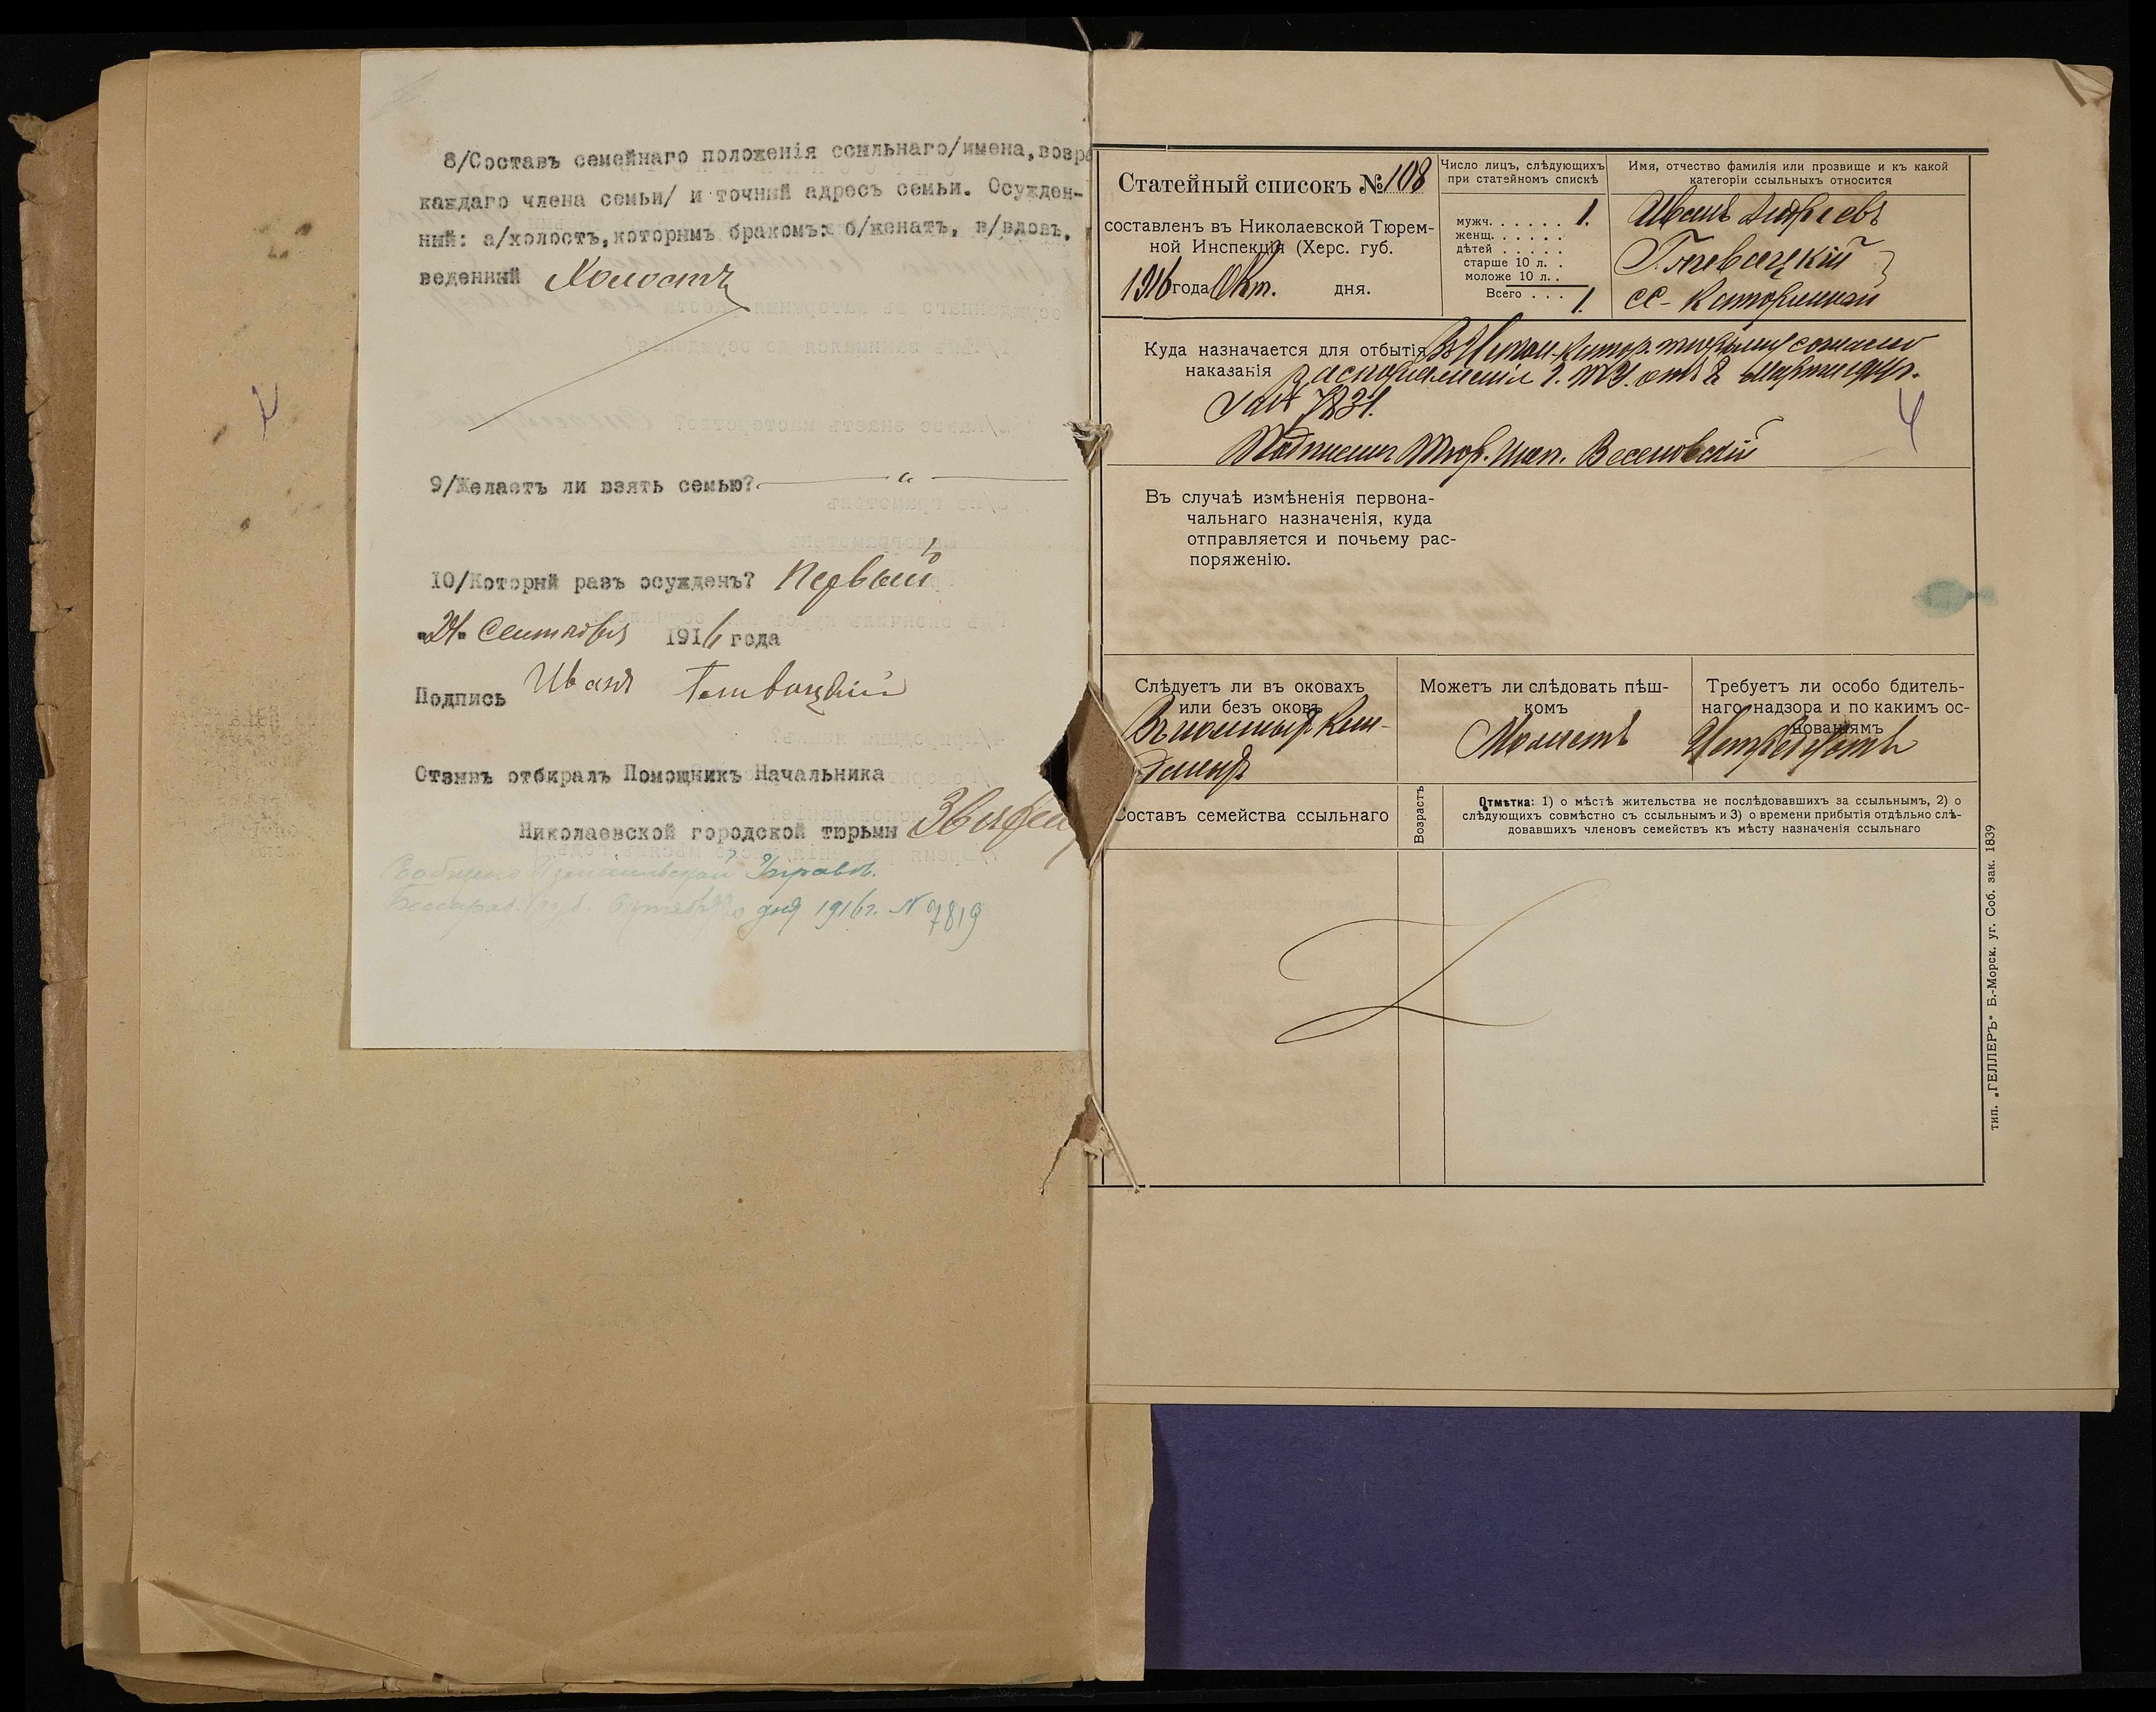 8/Составъ семейнаго положенія ссыльнаго/имена,возра
каждаго члена семьи/ и точный адресъ семьи. Осужден-
ный: а/холостъ,которымъ бракомъ: б/женатъ, в/вдовъ.
веденный Холостъ
9/Желаетъ ли взять семью? — " —
10/Который разъ осужденъ? Первый
"21" Сентября 1916 года
Подпись Иванъ
Отзывъ отбиралъ Помощникъ Начальника
Николаевской городской тюрьмы
Сообщено Измаильской Управѣ
Бессараб. губ. Октября дня 1916 г. № 7819
Статейный списокъ № 108
составленъ въ Николаевской Тюрем-
ной Инспекціи (Херс. губ.
1916 года Окт. дня.
Число лицъ, слѣдующихъ
при статейномъ спискѣ
мужч. . . . . . 1.
женщ. . . . . .
дѣтей . . . . .
старше 10 л. . .
моложе 10 л. . .
Всего . . . 1.
Имя, отчество фамилія или прозвище и къ какой
категоріи ссыльныхъ относится
Иванъ Андреевъ
сс-каторжный
Куда назначается для отбытія
наказанія
Въ Никол. катор. тюрьму согласно
распоряженія Г. Т. У. отъ 2 марта
за № 7831.
Подписалъ Тюр. Инсп.
4
Въ случаѣ измѣненія первона-
чальнаго назначенія, куда
отправляется и почьему рас-
поряженію.
Слѣдуетъ ли въ оковахъ
или безъ оковъ
Въ ножныхъ кан-
далахъ
Можетъ ли слѣдовать пѣш-
комъ
Можетъ
Требуетъ ли особо бдитель-
наго надзора и по какимъ ос-
нованіямъ
Не требуетъ
Составъ семейства ссыльнаго
Возрастъ
Отмѣтка: 1) о мѣстѣ жительства не послѣдовавшихъ за ссыльнымъ, 2) о
слѣдующихъ совмѣстно съ ссыльнымъ и 3) о времени прибытія отдѣльно слѣ-
довавшихъ членовъ семействъ къ мѣсту назначенія ссыльнаго
тип. „ГЕЛЛЕРЪ" Б.-Морск. уг. Соб. зак. 1839